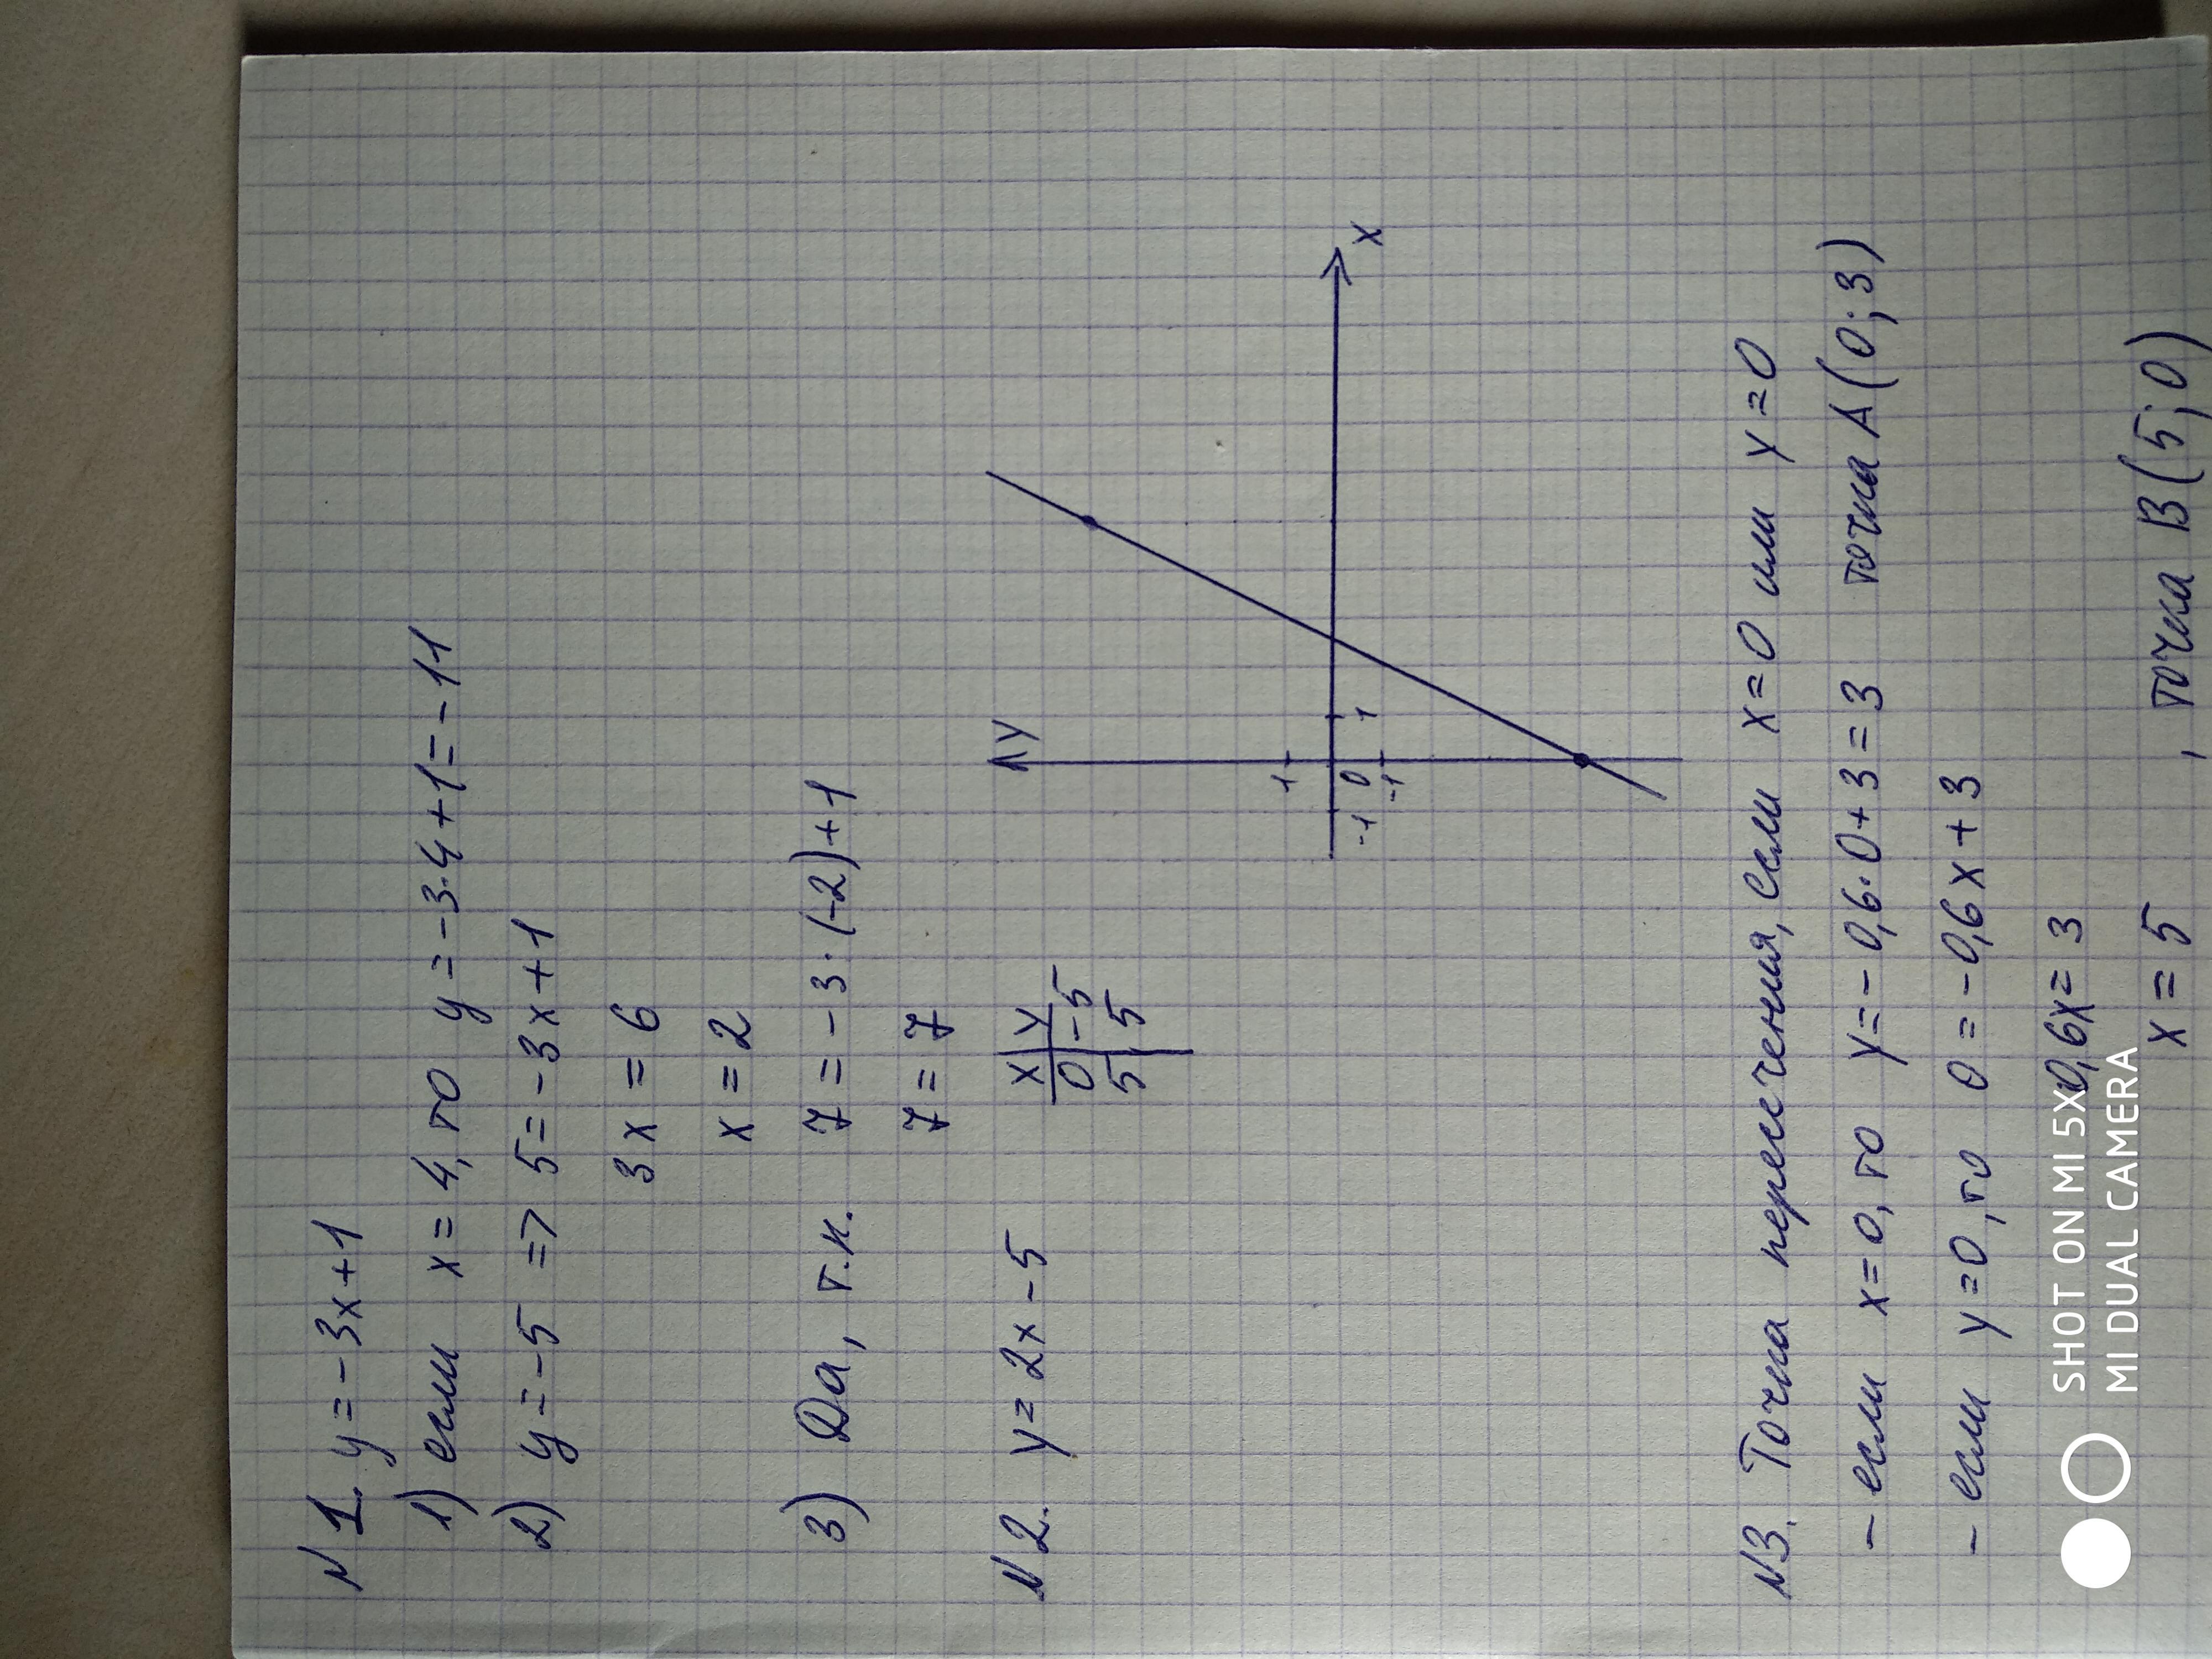 N 1. y = -3x+1
1) если x = 4, то y = -3·4+1 = -11
2) y = -5 => 5 = -3x+1
3x = 6
x = 2
3) Да, т.к. 7 = -3·(-2)+1
7 = 7
N 2. y = 2x-5
x y
0 -5
5 5
y
x
1
-1 0 1
-1
N3. Точка пересечения, если x=0 или y=0
- если x=0, то y = -0,6·0+3 = 3 точка A(0;3)
- если y=0, то 0 = -0,6x+3
0,6x = 3
x = 5 , точка B(5;0)
SHOT ON MI 5X
MI DUAL CAMERA